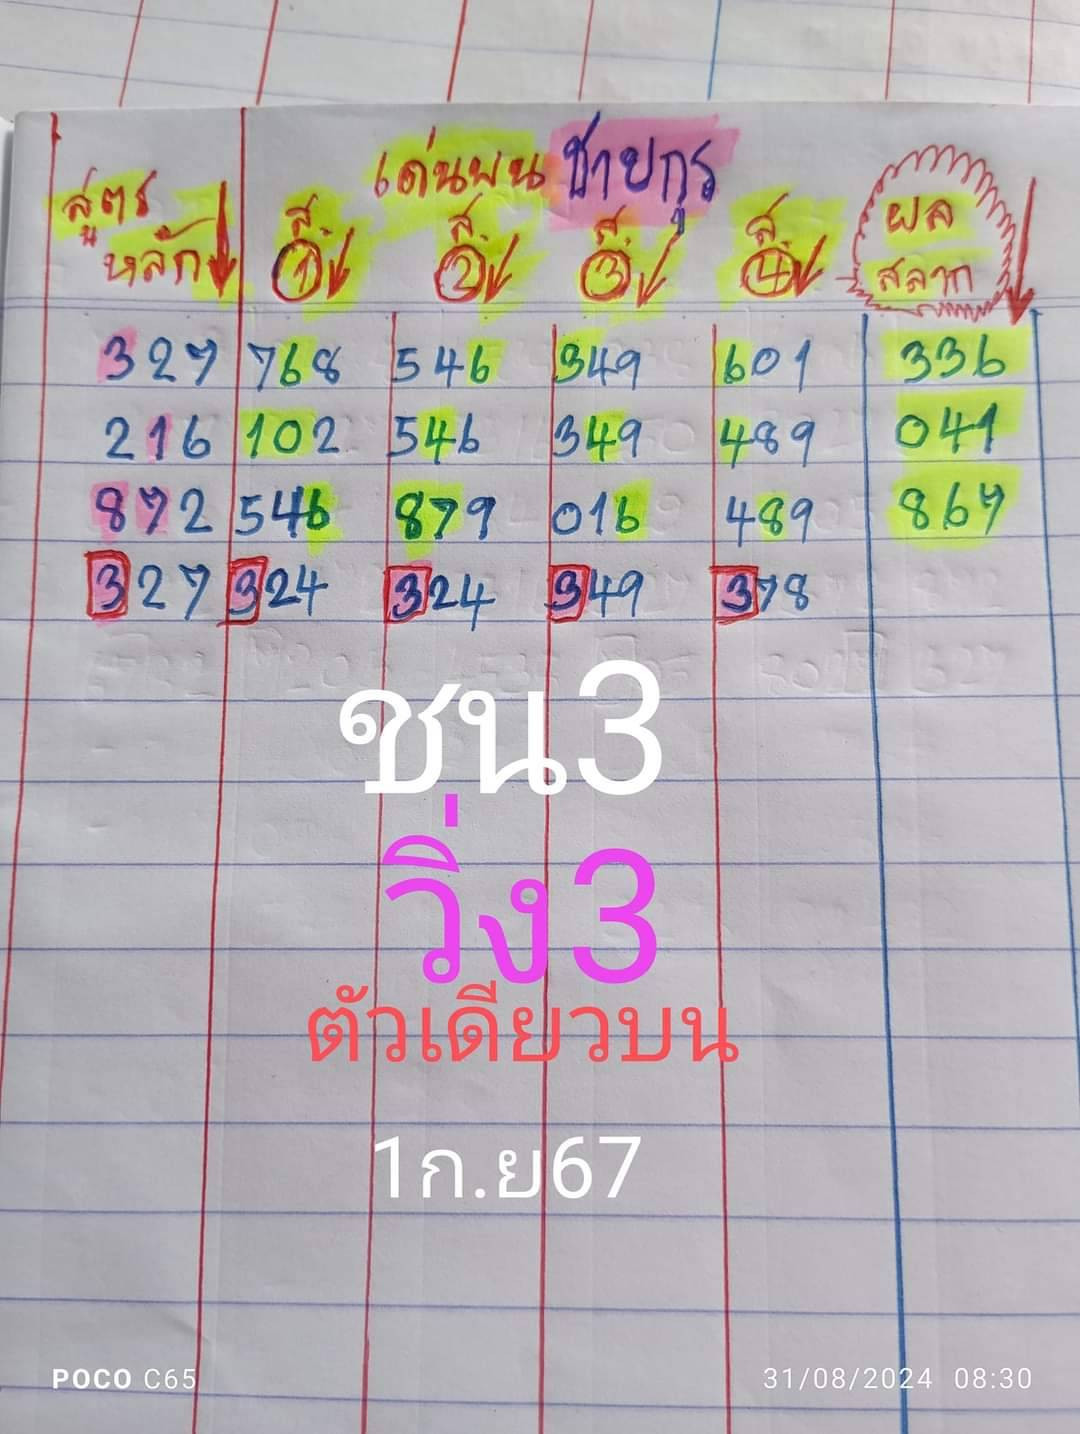 เด่นบน ชายกูร
สูตร
หลัก
ส. ส. ส. ส.
1 2 3 4
ผล
สลาก
327 768 546 349 601 336
216 102 546 349 489 041
872 546 879 016 489 867
327 324 324 349 378
ชน3
วิ่ง3
ตัวเดียวบน
1ก.ย67
POCO C65
31/08/2024 08:30